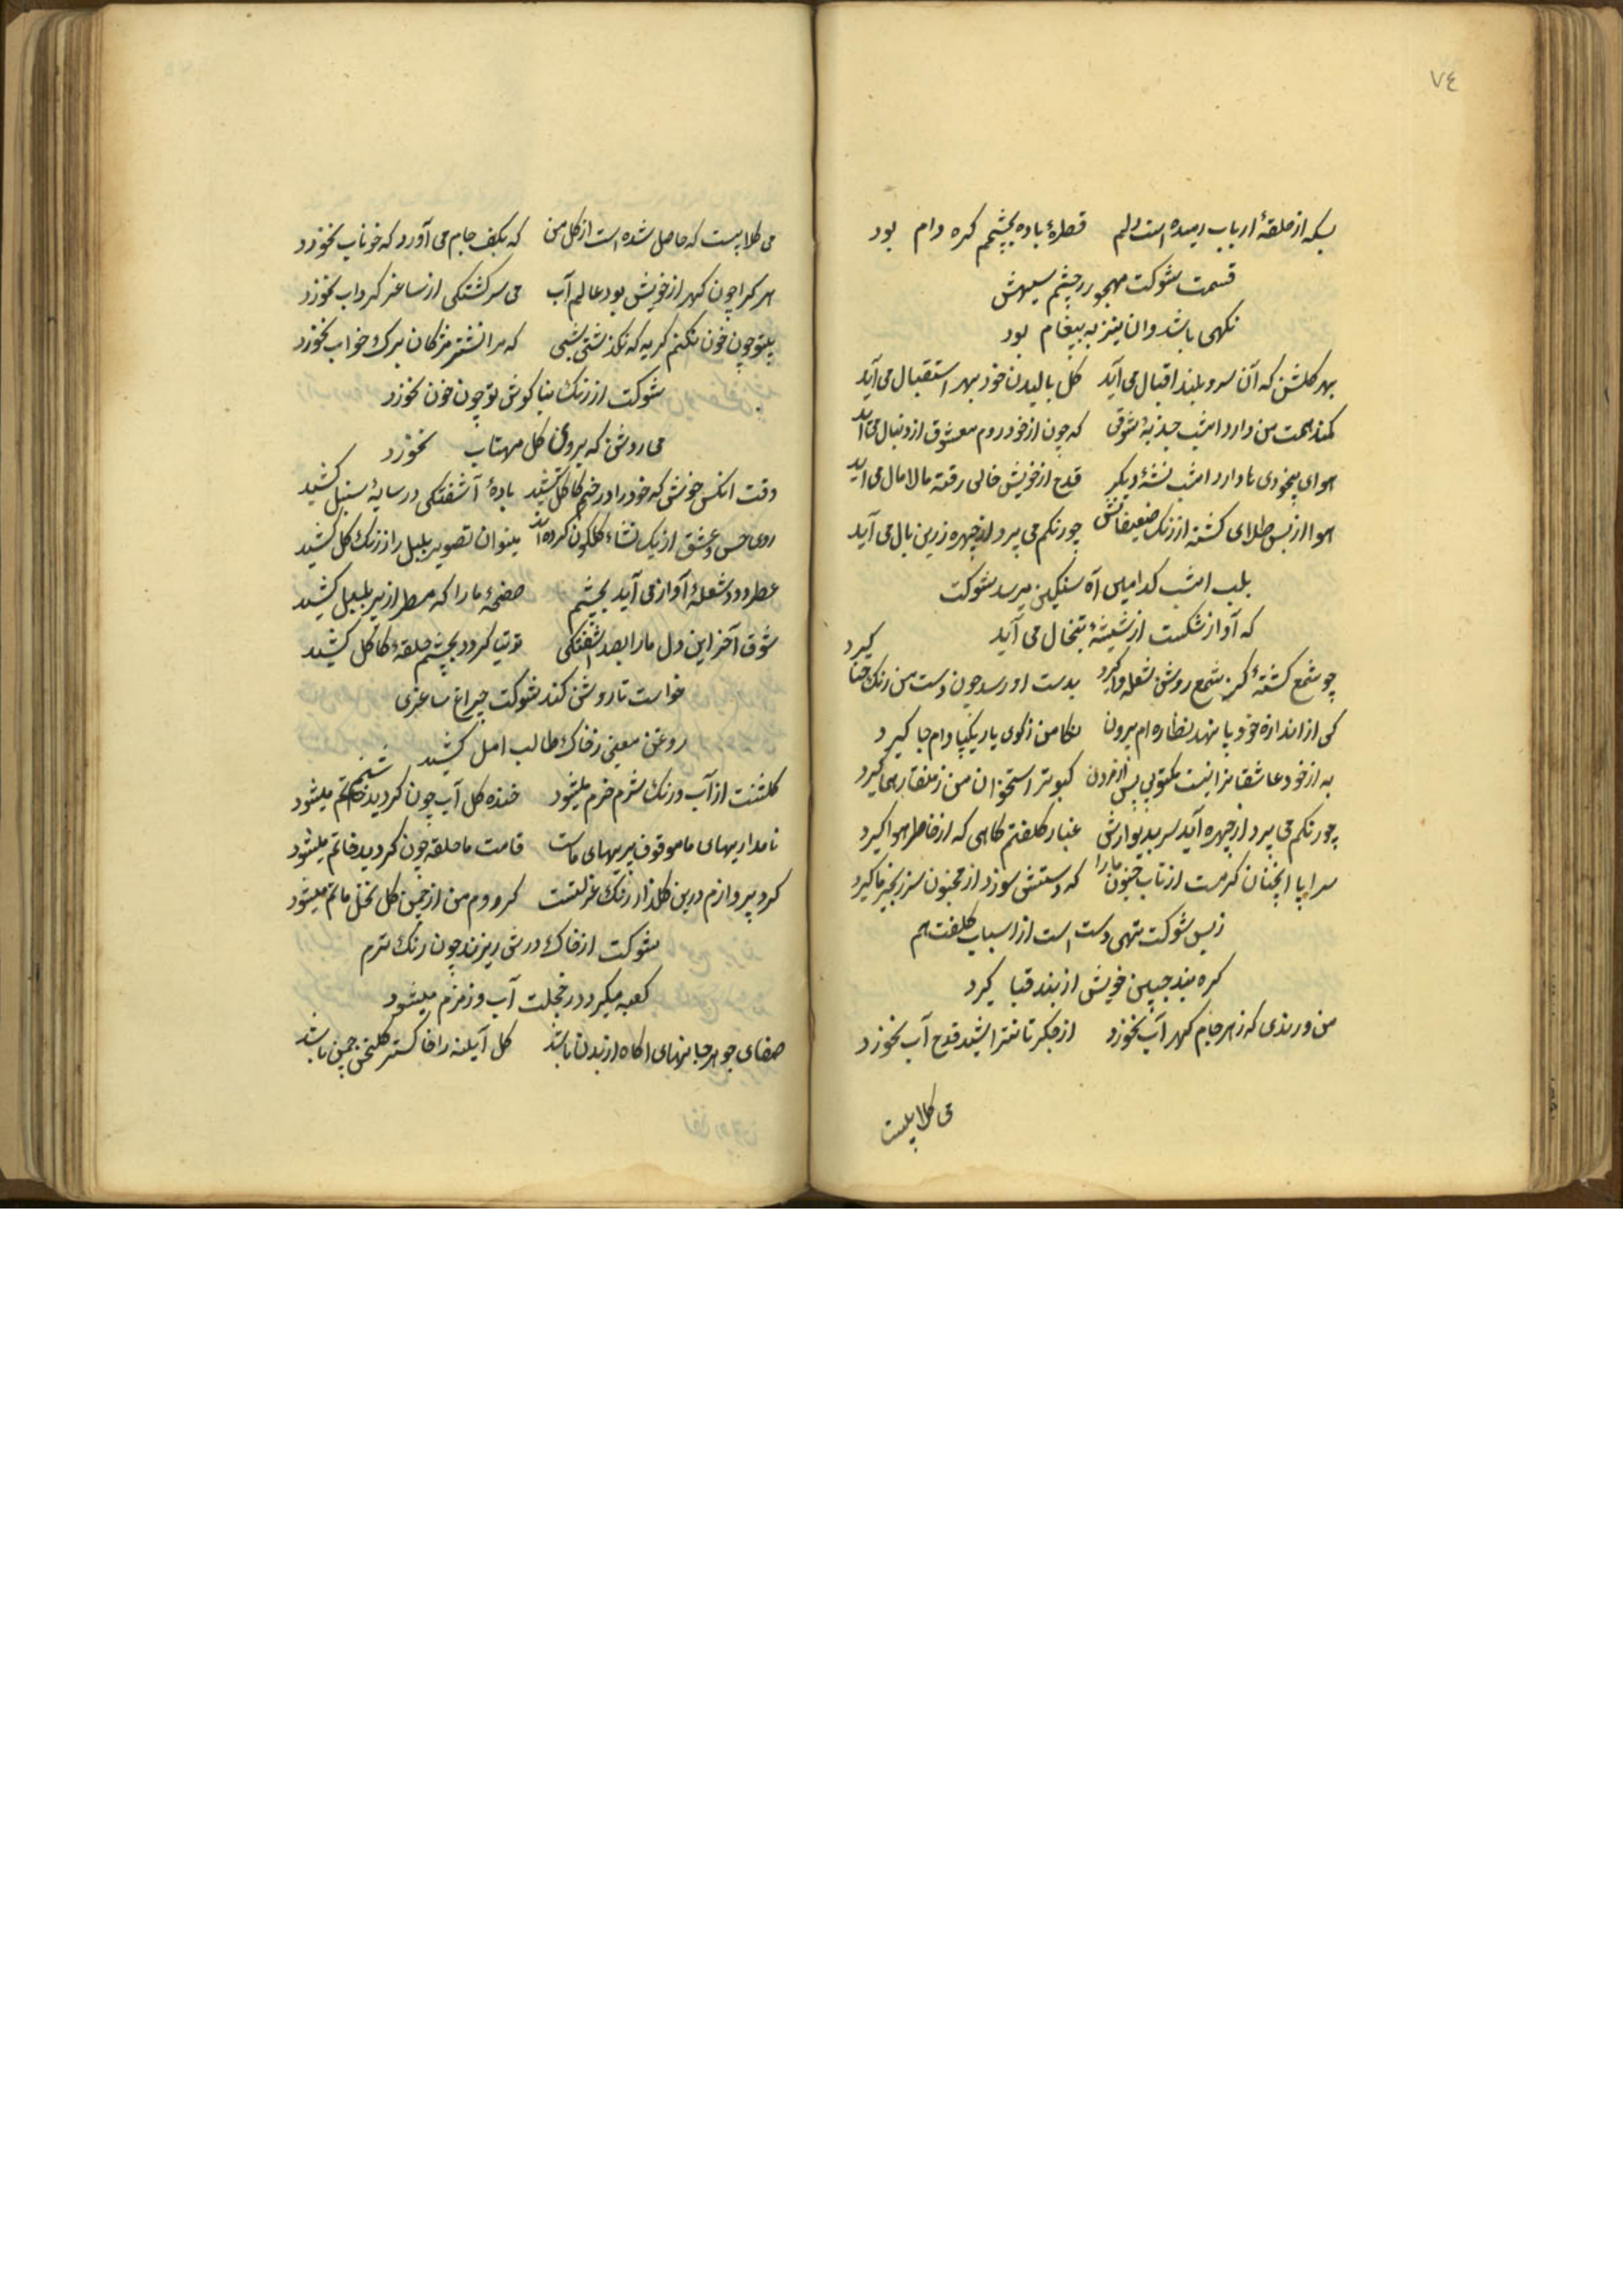 ٧٤
بسکه از حلقهٔ ارباب رمیده است دلم قطرهٔ باده بچشمم کره دام بود
قسمت شوکت مهجور ز چشم سیهش
نکهی باشد و ان نیز به پیغام بود
بهر کلشن که آن سرو بلند اقبال می آید کل بالیدن خود بهر استقبال می آید
کمند همت من دارد امشب جذبهٔ شوقی که چون از خود روم معشوق از دنبال می آید
هوای بیخودی ما دارد امشب نشئهٔ دیکر قدح از خویش خالی رفته مالامال می آید
هوا از بس طلای کشته از رنک ضعیفانش چو رنکم می پرد از چهره زرین بال می آید
بلب امشب کدامین آه سنکین میرسد شوکت
که آواز شکست از شیشهٔ تبخال می آید
چو شمع کشتهٔ کز شمع روشن شعله واکیرد بدست او رسد چون دست من رنک حنا کیرد
کی از اندازه خود پا نهد نظاره ام بیرون نکا من ز کوی یار یکپا وام جا کیرد
به از خود عاشقانرا نیست مکتوبی پس از مردن کبوتر استخوان من ز منقار هما کیرد
چو رنکم می پرد از چهره آید سر بدیوارش غبار کلفتم کاهی که از خاطر هوا کیرد
سراپا انچنان کرمست از تاب جنون ما را که دستش سوزد از مجنون سر زنجیر ما کیرد
ز بس شوکت تهی دست است از اسباب کلفت هم
کره بند جبین خویش از بند قبا کیرد
من و رندی که ز هر جام کهر آب نخورد از جکر تا نتراشید قدح آب نخورد
می کلابیست
می کلابیست که حاصل شده است از کل من که بکف جام می آورد که خوناب نخورد
هر کرا چون کهر از خویش بود عالم آب می سرکشتکی از ساغر کرداب نخورد
بیتو چون خون نکنم کریه که نکذشت شبی که مرا نشتر مژکان برک خواب نخورد
شوکت از رنک بناکوش تو چون خون نخورد
می روشن که بروی کل مهتاب نخورد
وقت انکس خوش که خود را در خم کاکل کشید بادهٔ آشفتکی در سایهٔ سنبل کشید
روی حسن و عشق از یک نشاء کلکون کرده اند میتوان تصویر بلبل را ز رنک کل کشید
عطر دود شعلهٔ آواز می آید بچشم صفحهٔ ما را که مسطر از پر بلبل کشید
شوق آخر این دل ما را بصد آشفتکی توتیا کرد و بچشم حلقهٔ کاکل کشید
خواست تا روشن کند شوکت چراغ ساغری
روغن معنی ز خاک طالب امل کشید
کلشنت از آب و رنک شرم خرم میشود خنده کل آب چون کردید شبنم میشود
نامداریهای ما موقوف پیریهای ماست قامت ما حلقه چون کردید خاتم میشود
کرد پروازم درین کلذار رنک عزلتست کر روم من از چمن کل نخل ماتم میشود
شوکت از خاک درش ریزند چون رنک حرم
کعبه میکردد ز خجلت آب و زمزم میشود
صفای جوهر جانهای اکاه از بدن باشد کل آیینه را خاکستر کلخن چمن باشد